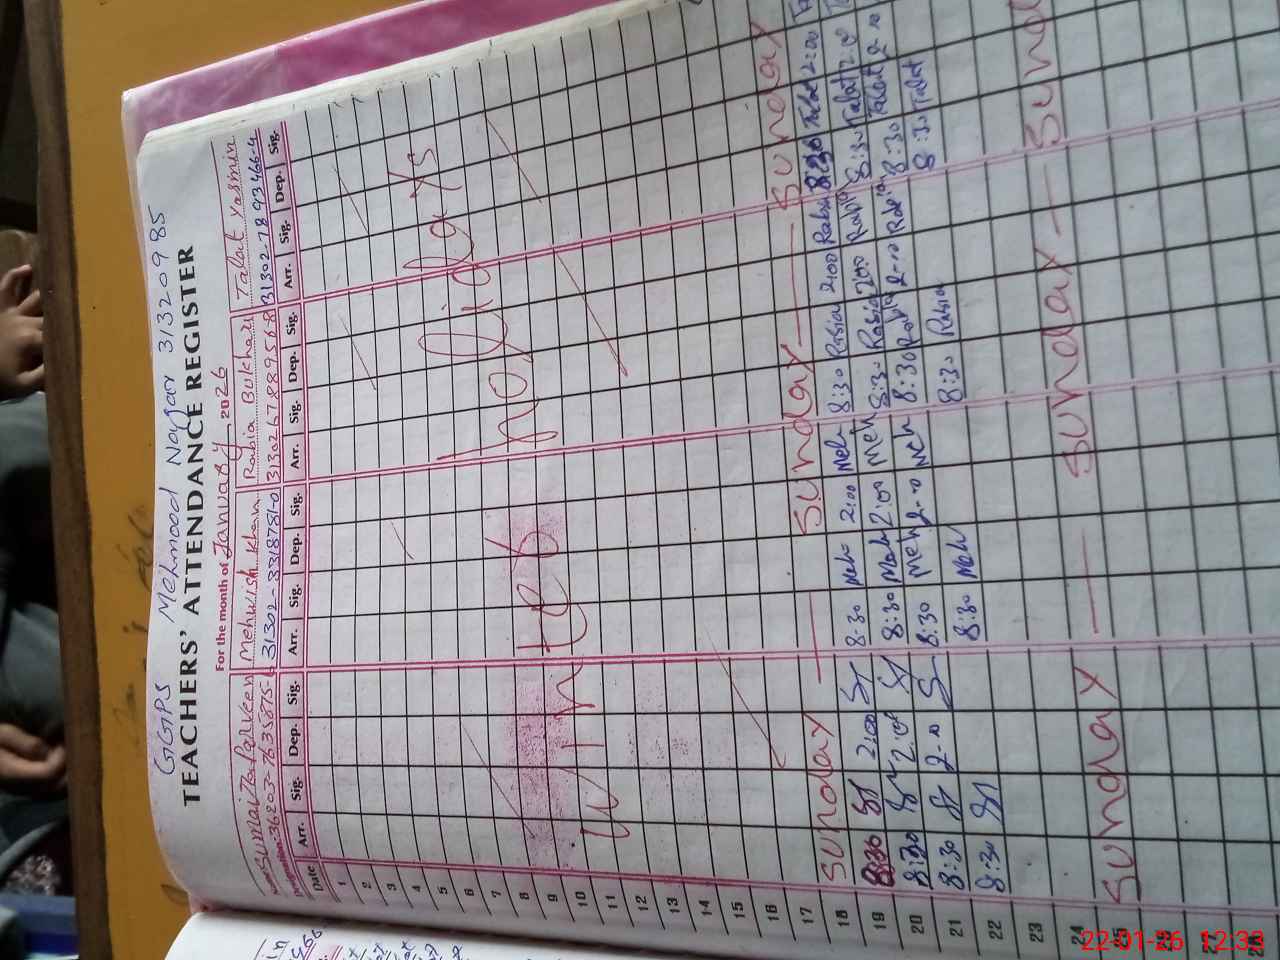 GGPS Mehmood Nagar 31320985
TEACHERS' ATTENDANCE REGISTER
For the month of January 2026
Name Parveen Mehwish Khan Rabia Bukhari Talat Yasmin
Designation: 36203-7635875-6 31302-3318781-0 31302-6788956-8 31302-7893466-4
Date Arr. Sig. Dep. Sig. Arr. Sig. Dep. Sig. Arr. Sig. Dep. Sig. Arr. Sig. Dep. Sig.
1
2
3
4
5
6
7
8
9
10
11
Winter holidays
12
13
14
15
16
17
18 Sunday Sunday Sunday
19 8:30 2:00 8-30 Meh 2:00 Meh 8:30 Rabia 2:00 Rabia 8:30 2:00
20 8:30 2:00 8:30 Meh 2:00 Meh 8:30 Rabia 2:00 Rabia 8:30 Talat 2:00
21 8:30 2-00 8:30 Meh 2-00 Meh 8:30 Rabia 2-00 Rabia 8:30 Talat 2-00
22 8:30 8:30 Meh 8:30 Rabia 8:30 Talat
23
24
25 Sunday Sunday Sunday
26
27
28
22-01-26 12:33